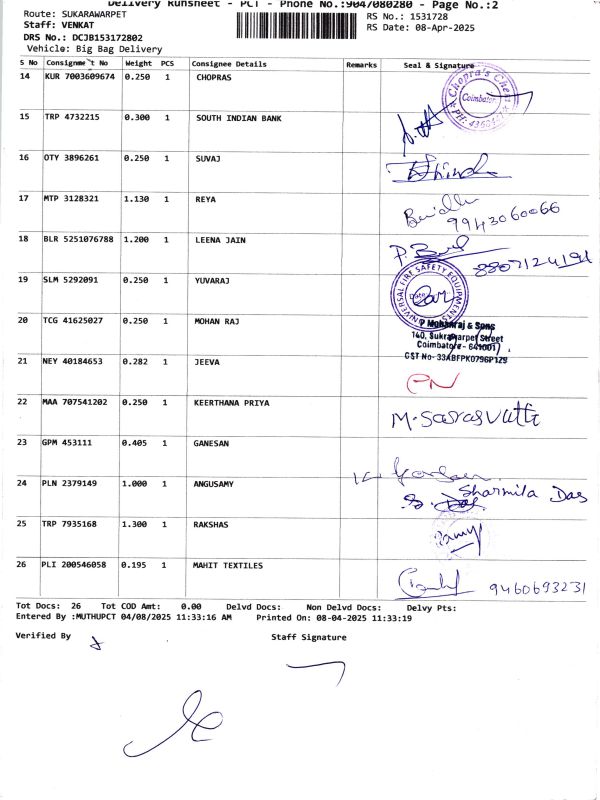 Delivery Runsheet - PCT - Phone No.:9047080280 - Page No.:2
Route: SUKARAWARPET
RS No.: 1531728
Staff: VENKAT
RS Date: 08-Apr-2025
DRS No.: DCJB153172802
Vehicle: Big Bag Delivery
S No Consignment No Weight PCS Consignee Details Remarks Seal & Signature
14 KUR 7003609674 0.250 1 CHOPRAS
Chopra's
Coimbatore
15 TRP 4732215 0.300 1 SOUTH INDIAN BANK
16 OTY 3896261 0.250 1 SUVAJ
17 MTP 3128321 1.130 1 REYA
9943060066
18 BLR 5251076788 1.200 1 LEENA JAIN
8807124191
19 SLM 5292091 0.250 1 YUVARAJ
UNIVERSAL FIRE SAFETY EQUIPMENTS
20 TCG 41625027 0.250 1 MOHAN RAJ
P Mohanraj & Sons
140, Sukrawarpet Street
Coimbatore - 641001
GST No- 33ABFPK0796P1Z9
21 NEY 40184653 0.282 1 JEEVA
22 MAA 707541202 0.250 1 KEERTHANA PRIYA
M. Sarasvathi
23 GPM 453111 0.405 1 GANESAN
24 PLN 2379149 1.000 1 ANGUSAMY
Sharmila Das
25 TRP 7935168 1.300 1 RAKSHAS
26 PLI 200546058 0.195 1 MAHIT TEXTILES
9460693231
Tot Docs: 26 Tot COD Amt: 0.00 Delvd Docs: Non Delvd Docs: Delvy Pts:
Entered By :MUTHUPCT 04/08/2025 11:33:16 AM Printed On: 08-04-2025 11:33:19
Verified By Staff Signature